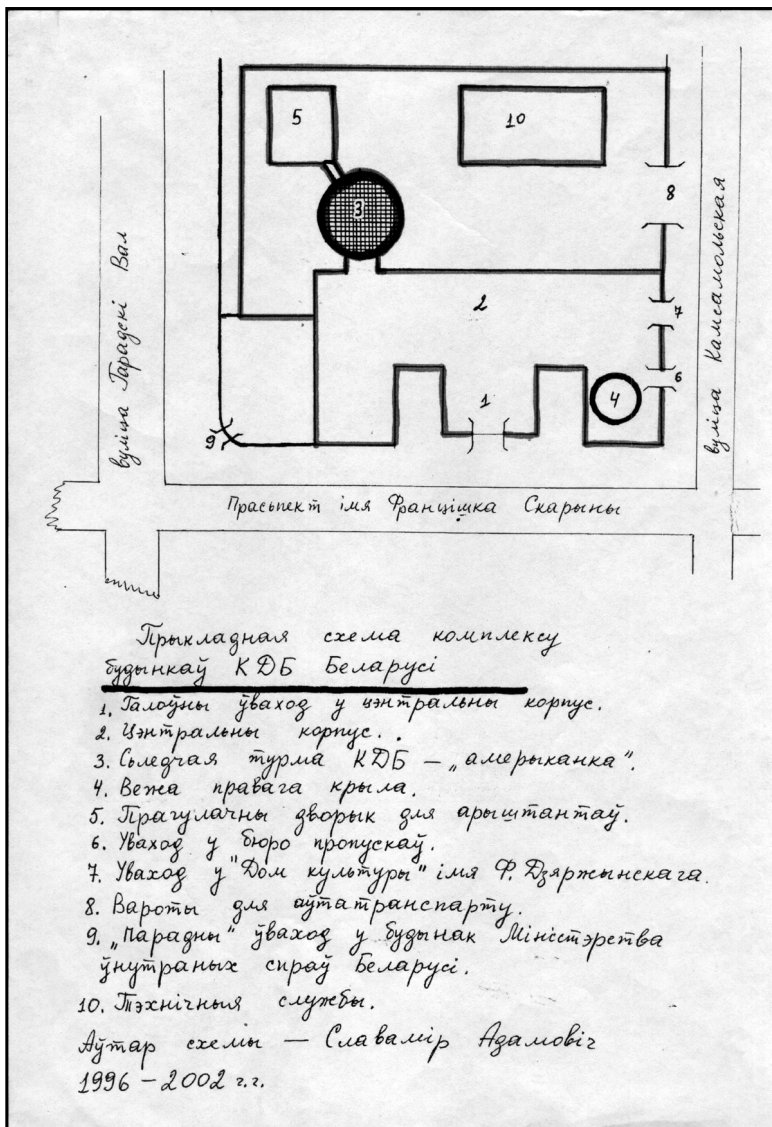 5
10
3
8
2
7
6
4
1
9
вуліца Гарадскі Вал
вуліца Камсамольская
Прасьпект імя Францішка Скарыны
Прыкладная схема комплексу
будынкаў КДБ Беларусі
1. Галоўны ўваход у цэнтральны корпус.
2. Цэнтральны корпус.
3. Сьледчая турма КДБ — „амерыканка".
4. Вежа правага крыла.
5. Прагулачны дворык для арыштантаў.
6. Уваход у бюро пропускаў.
7. Уваход у "Дом культуры" імя Ф. Дзяржынскага.
8. Вароты для аўтатранспарту.
9. „Парадны" ўваход у будынак Міністэрства
ўнутраных спраў Беларусі.
10. Тэхнічныя службы.
Аўтар схемы — Славамір Адамовіч
1996 – 2002 г.г.